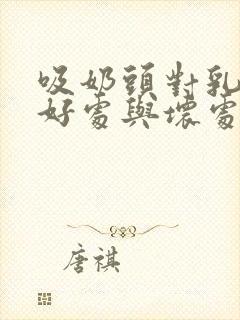 吸奶頭對乳
好處與壞處
唐祺